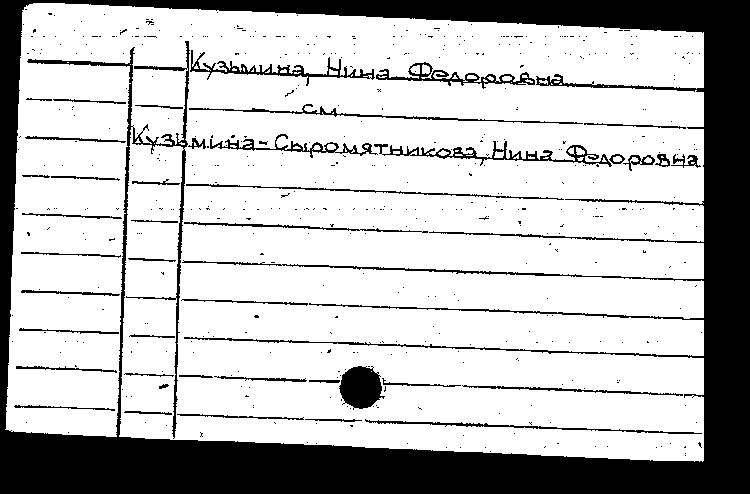 Кузьмина, Нина Федоровна
см
Кузьмина-Сыромятникова, Нина Федоровна